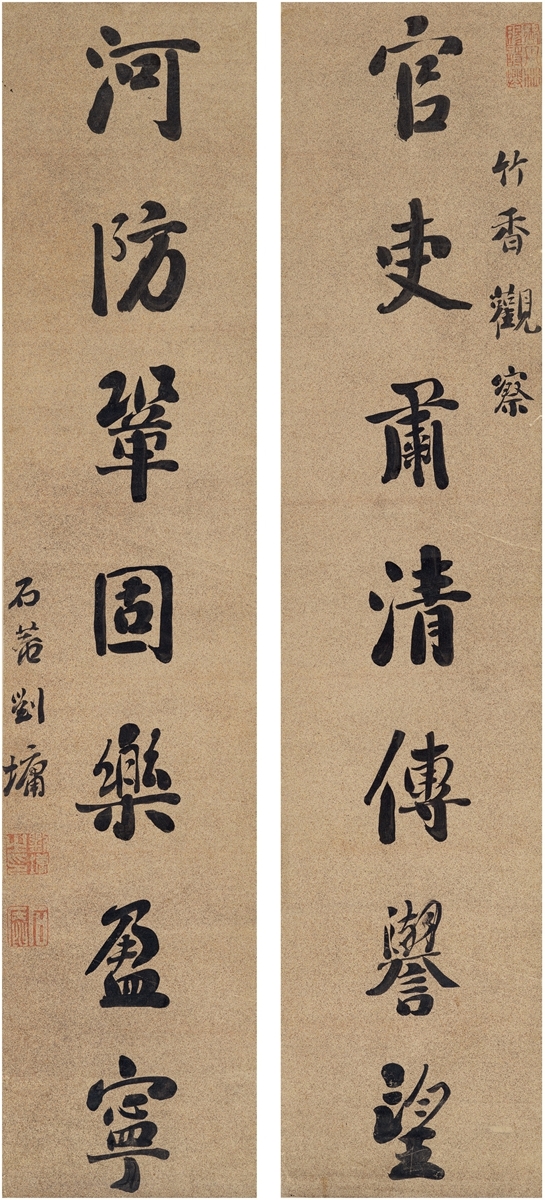 竹香觀察
官吏肅清傳譽望
河防鞏固樂盈寧
石菴劉墉